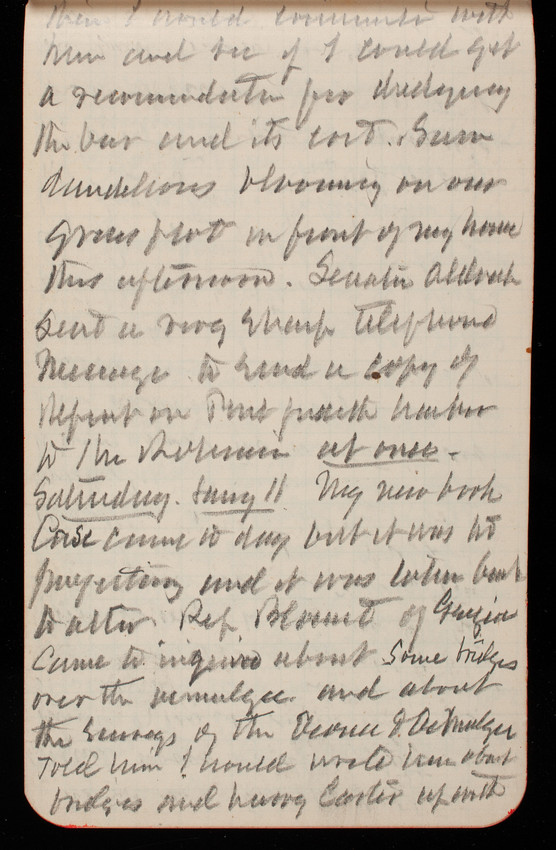 then I would communicate with
him and see if I could get
a recommendation for dredging
the bar and its cost. Saw
dandelions blooming on our
grass plot in front of my house
this afternoon. Senator Aldrich
sent a very sharp telephone
message to send a copy of
Report on Point Judith harbor
to the at once.
Saturday. Jany 11 My new book
Case came to day but it was
projecting and it was taken back
to alter. Rep. Blount of Georgia
came to inquire about some bridges
over the Ocmulgee. and about
the Surveys of the & Ocmulgee
Told him I would write him about
bridges and hurry Carter up with